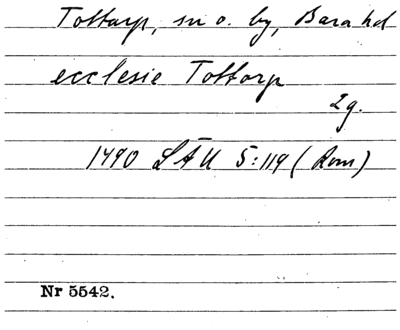 Tottarp, sn o. by, Bara hd
ecclesie Tottorp
2g.
1490 LÄU 5:119 (Rom)
Nr 5542.